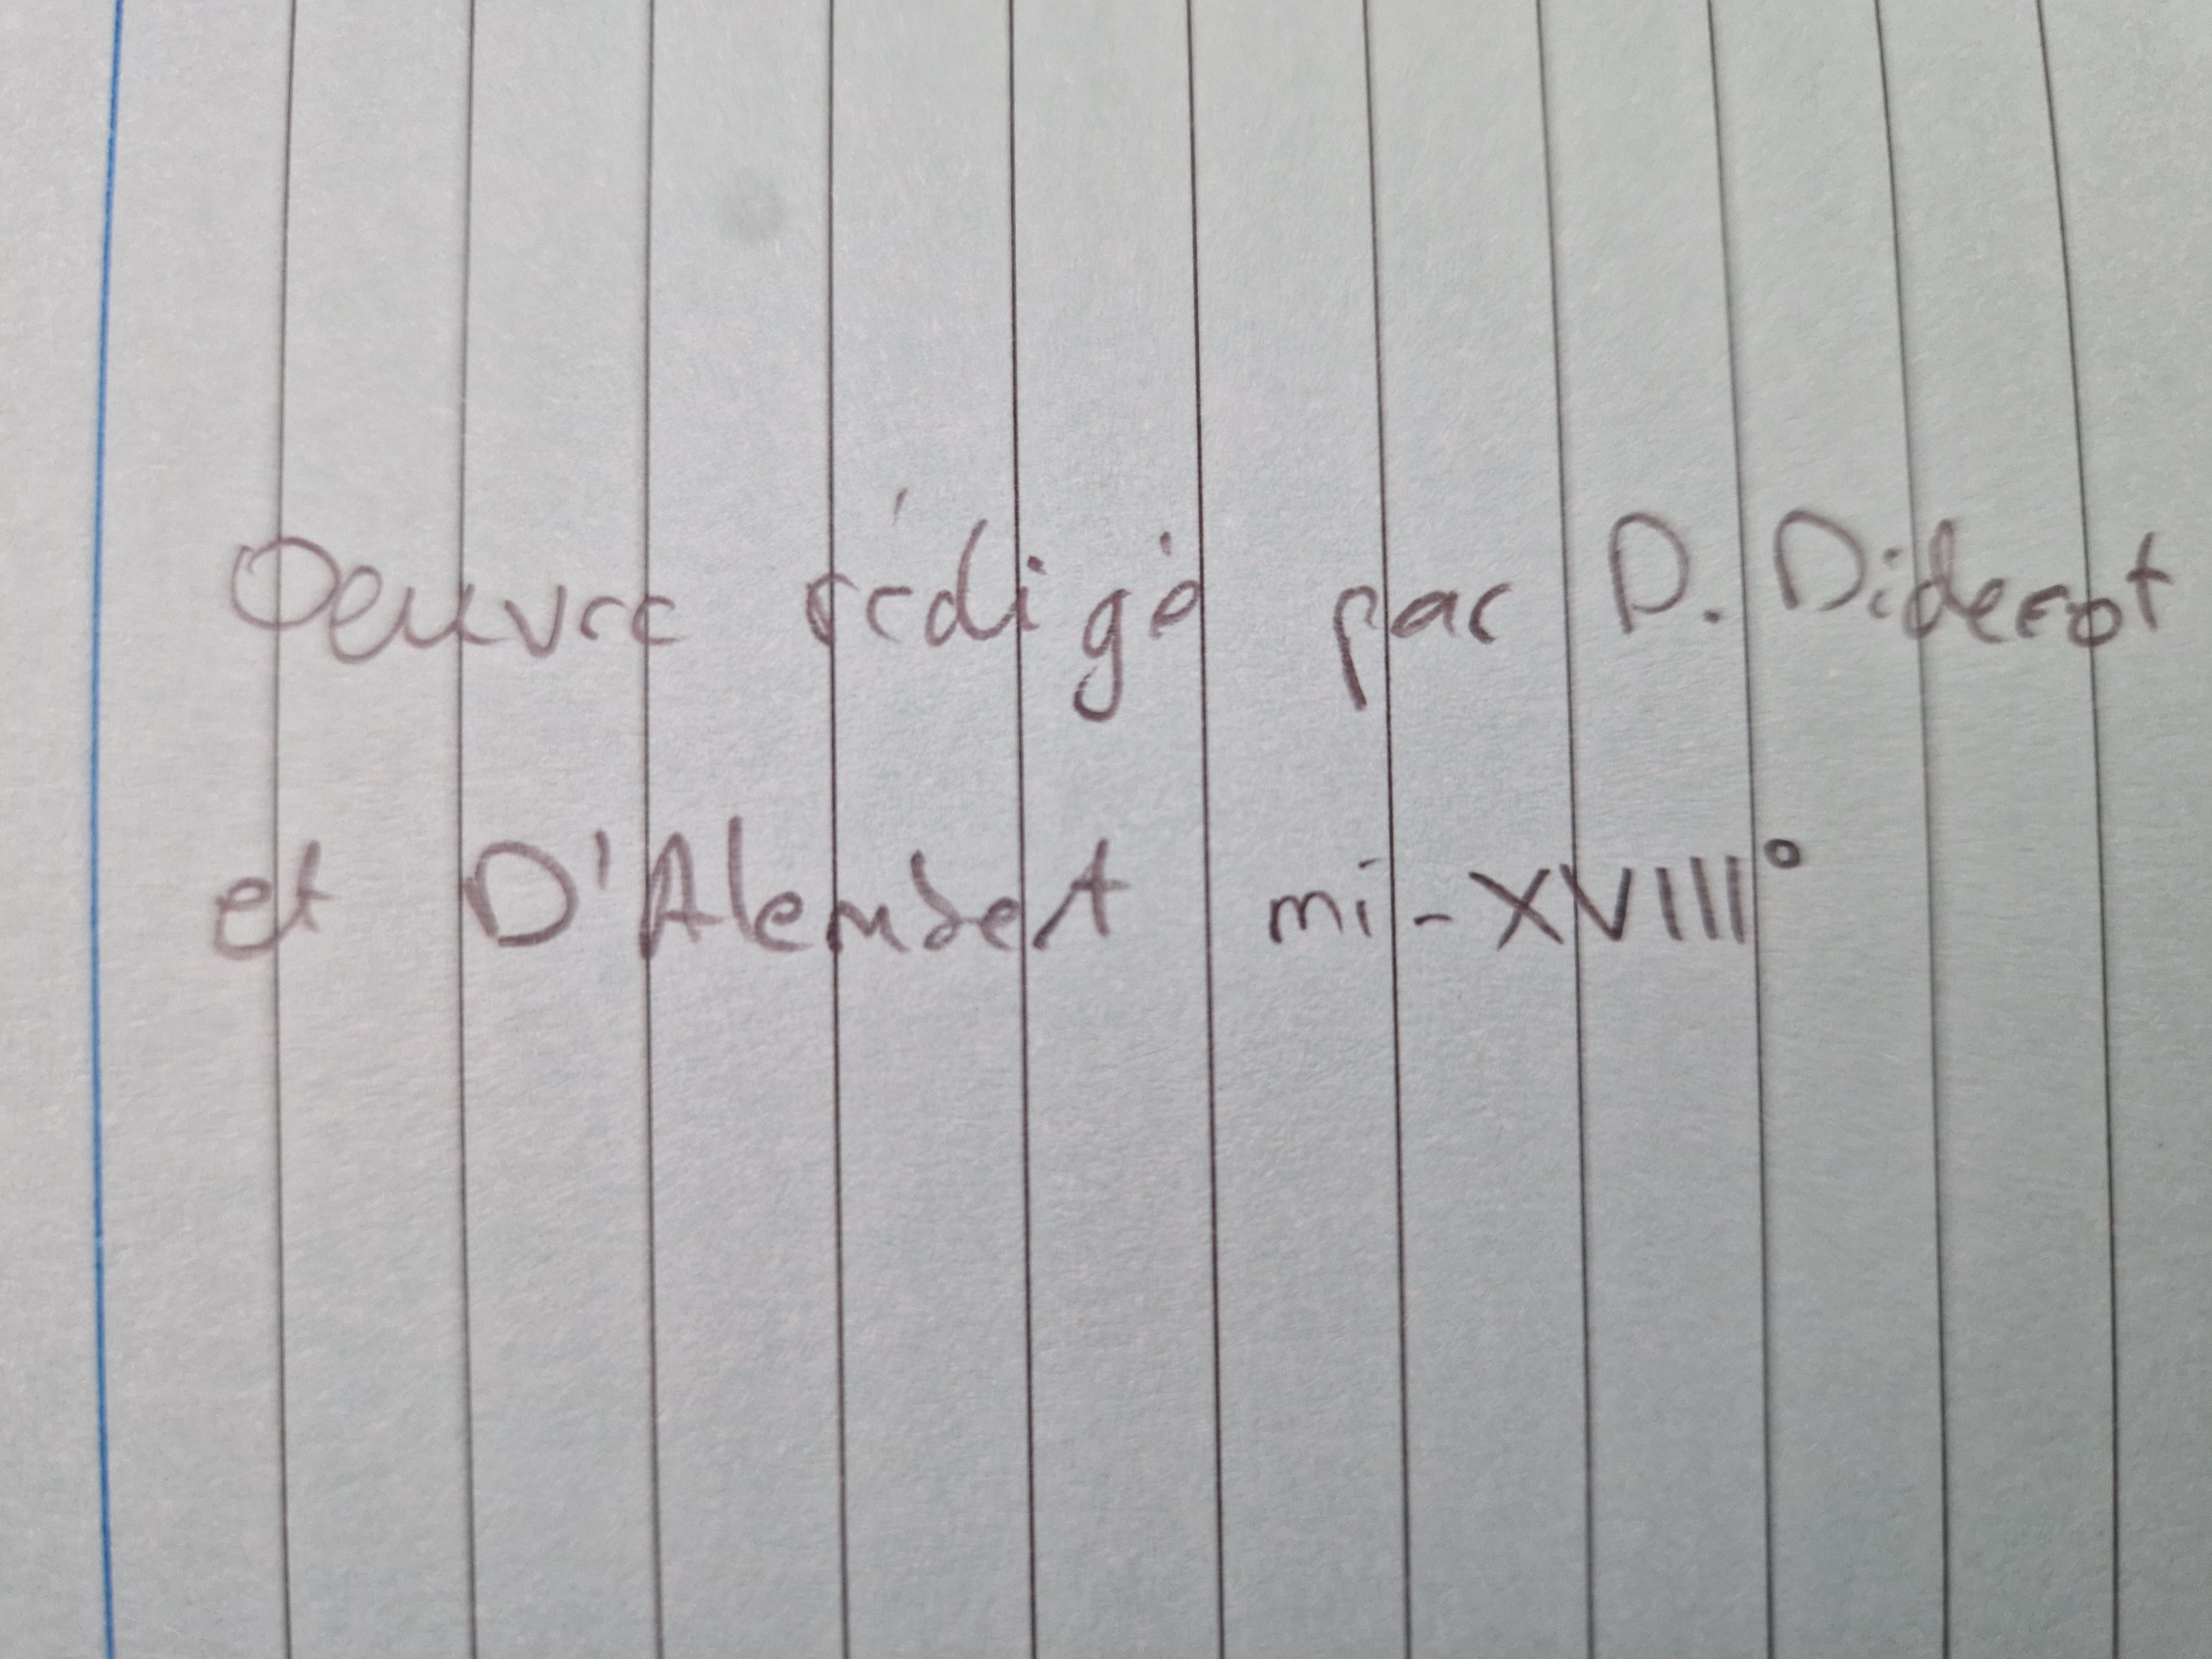 Oeuvre rédigé par D. Diderot
et D'Alembert mi-XVIII°